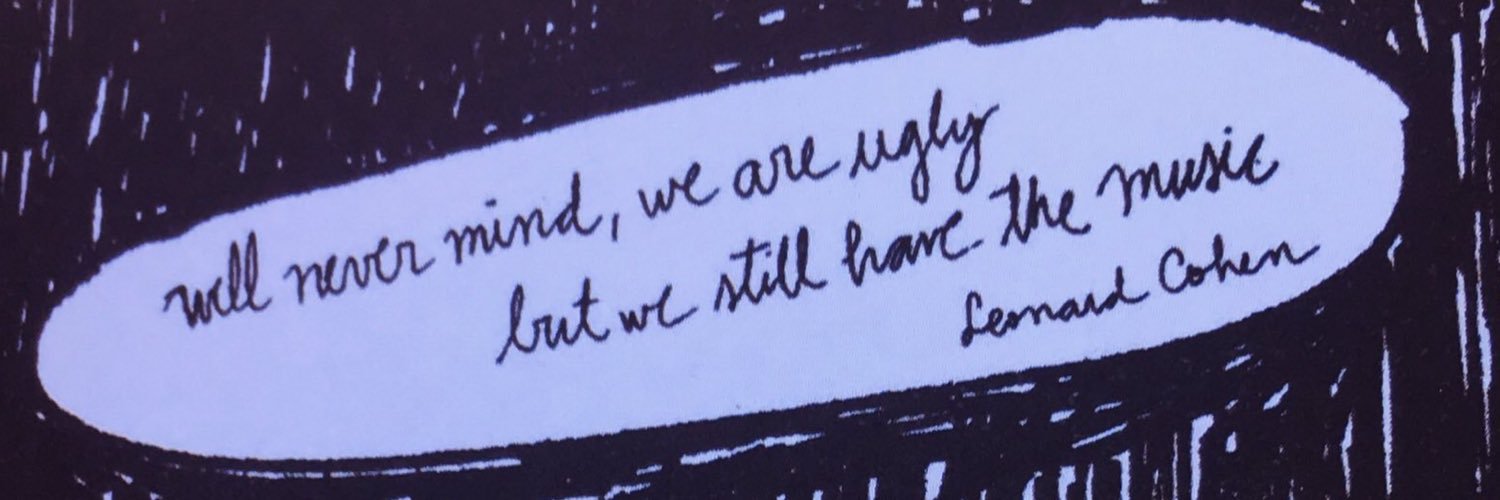 well never mind, we are ugly
but we still have the music
Leonard Cohen